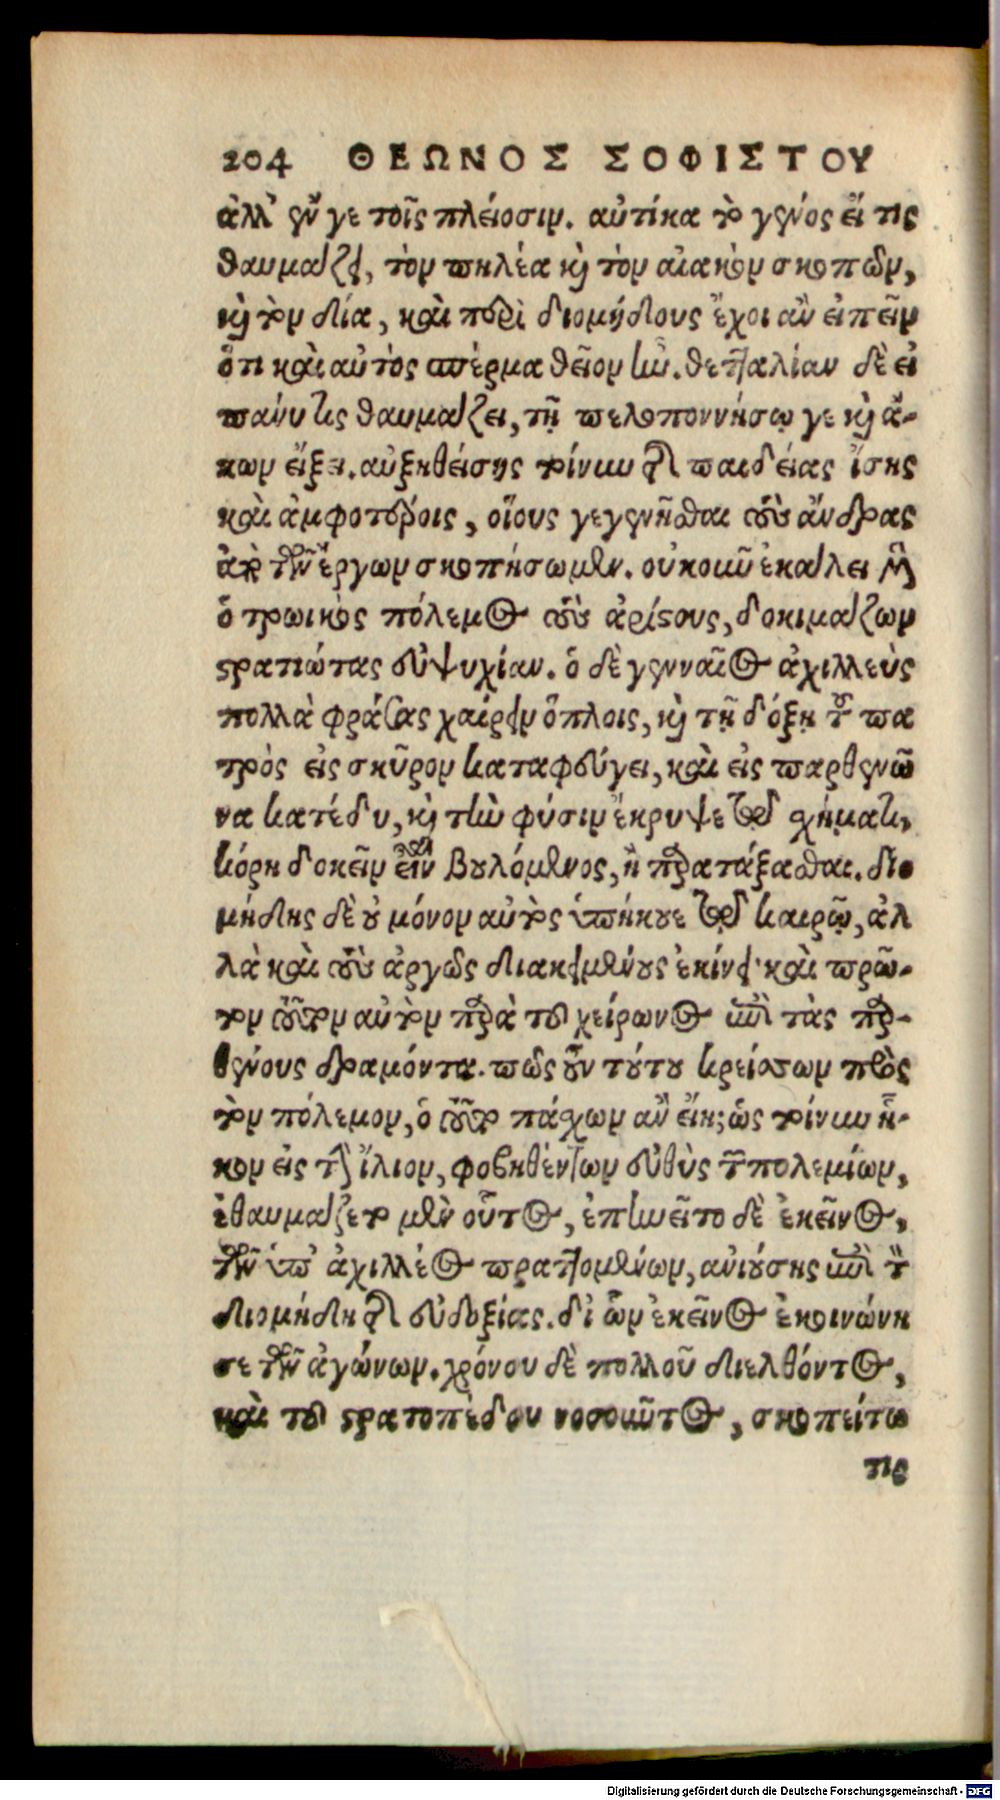 204 ΘΕΩΝΟΣ ΣΟΦΙΣΤΟΥ
ἀλλ' ἔν γε τοῖς πλείοσιν. αὐτίκα τὸ γένος εἴ τις
θαυμάζει, τὸν πηλέα καὶ τὸν αἰακὸν σκοπῶν,
καὶ τὸν δία, καὶ περὶ διομήδους ἔχοι ἂν εἰπεῖν
ὅτι καὶ αὐτὸς σπέρμα θεῖον ἦν. θετταλίαν δὲ εἰ
πάνυ τις θαυμάζει, τῇ πελοποννήσῳ γε καὶ ἄ-
κων εἴξει. αὐξηθείσης τοίνυν τῆς παιδείας ἴσης
καὶ ἀμφοτέροις, οἵους γεγενῆσθαι τοὺς ἄνδρας
ἀπὸ τῶν ἔργων σκοπήσωμεν. οὐκοῦν ἐκάλει μὲν
ὁ τρωικὸς πόλεμος τοὺς ἀρίστους, δοκιμάζων
στρατιώτας εὐψυχίαν. ὁ δὲ γενναῖος ἀχιλλεὺς
πολλὰ φράσας χαίρειν ὅπλοις, καὶ τῇ δόξῃ τοῦ πα
τρὸς εἰς σκῦρον καταφεύγει, καὶ εἰς παρθενῶ
να κατέδυ, καὶ τὴν φύσιν ἔκρυψε τῷ σχήματι,
κόρη δοκεῖν εἶναι βουλόμενος, ἢ παρατάξασθαι. διο
μήδης δὲ οὐ μόνον αὐτὸς ὑπήκουε τῷ καιρῷ, ἀλ
λὰ καὶ τοὺς ἀργῶς διακειμένους ἐκίνει· καὶ πρῶ-
τον τοῦτον αὐτὸν παρὰ τοῦ χείρωνος ἐπὶ τὰς παρ-
θένους δραμόντα. πῶς οὖν τούτου κρείσσων πρὸς
τὸν πόλεμον, ὁ τοῦτο πάσχων ἂν εἴη; ὡς τοίνυν ἧ-
κον εἰς τὴν ἴλιον, φοβηθέντων εὐθὺς τῶν πολεμίων,
ἐθαυμάζετο μὲν οὗτος, ἐπῃνεῖτο δὲ ἐκεῖνος,
τῶν ὑπ' ἀχιλλέος πραττομένων, ἀνιούσης ἐπὶ τὸν
διομήδη τῆς εὐδοξίας. δι' ὧν ἐκεῖνος ἐκοινώνη
σε τῶν ἀγώνων. χρόνου δὲ πολλοῦ διελθόντος,
καὶ τοῦ στρατοπέδου νοσοῦντος, σκοπείτω
τις
Digitalisierung gefördert durch die Deutsche Forschungsgemeinschaft - DFG